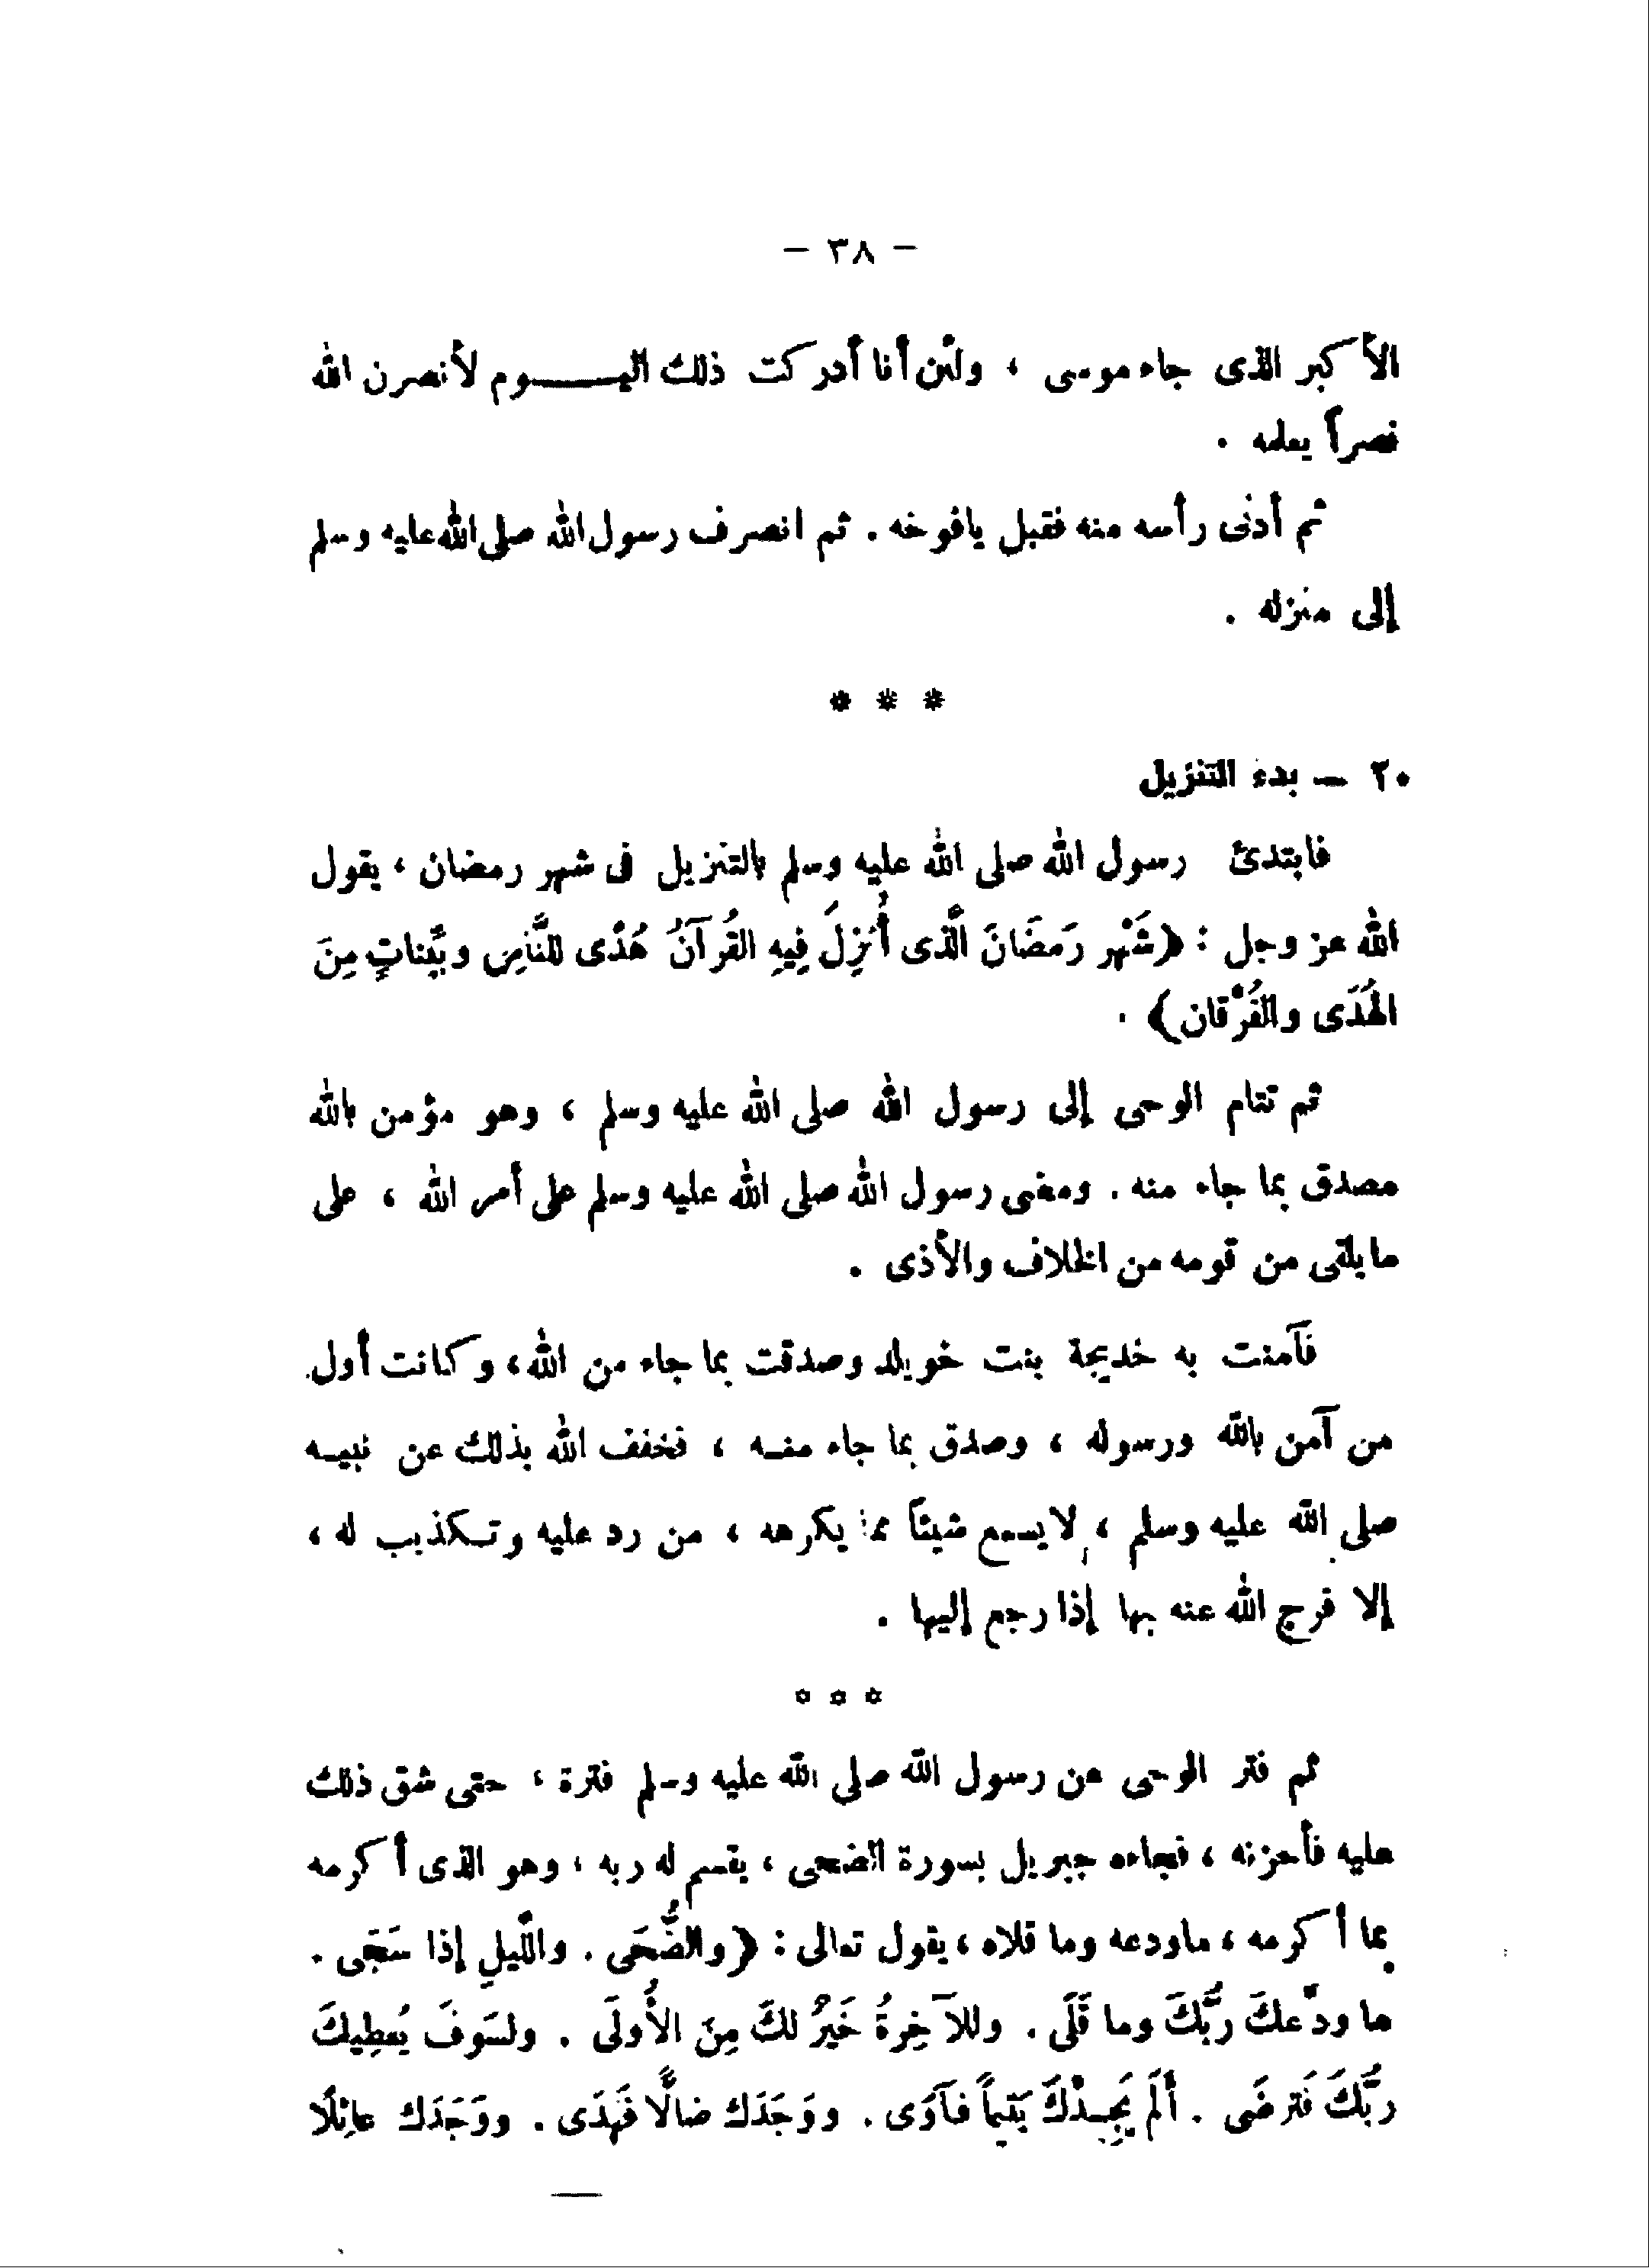 – ٣٨ –
الأكبر الذى جاء موسى ، ولئن أنا أدركت ذلك اليـــــوم لأنصرن الله
نصراً يعلمه .
ثم أدنى رأسه منه فقبل يافوخه . ثم انصرف رسول الله صلى الله عليه وسلم
إلى منزله .
* * *
٢٠ – بدء التنزيل
فابتدئ رسول الله صلى الله عليه وسلم بالتنزيل فى شهر رمضان ، يقول
الله عز وجل : ﴿شَهْر رَمضَانَ الَّذى أُنْزِلَ فِيهِ القُرآنُ هُدًى للنَّاسِ وبيِّناتٍ مِنَ
الهُدَى والفُرْقان﴾ .
ثم تتام الوحى إلى رسول الله صلى الله عليه وسلم ، وهو مؤمن بالله
مصدق بما جاء منه . ومضى رسول الله صلى الله عليه وسلم على أمر الله ، على
ما يلقى من قومه من الخلاف والأذى .
فآمنت به خديجة بنت خويلد وصدقت بما جاء من الله ، وكانت أول
من آمن بالله ورسوله ، وصدق بما جاء منـه ، فخفف الله بذلك عن نبيـه
صلى الله عليه وسلم ، لا يسمع شيئاً مما يكرهه ، من رد عليه وتـكذيب له ،
إلا فرج الله عنه بها إذا رجع إليها .
* * *
ثم فتر الوحى عن رسول الله صلى الله عليه وسلم فترة ، حتى شق ذلك
عليه فأحزنه ، فجاءه جبريل بسورة الضحى ، يقسم له ربه ، وهو الذى أكرمه
بما أكرمه ، ماودعه وما قلاه ، يقول تعالى : ﴿والضُّحَى . واللَّيلِ إذا سَجَى .
ما ودَّعكَ ربُّكَ وما قَلَى . وللآخِرةُ خَيْرٌ لكَ مِنَ الأُولَى . ولسَوفَ يُعطِيكَ
ربُّكَ فَترضَى . أَلَم يَجِـدْكَ يَتيماً فآوَى . ووَجَدَك ضالًّا فَهَدَى . ووَجَدَك عائِلًا